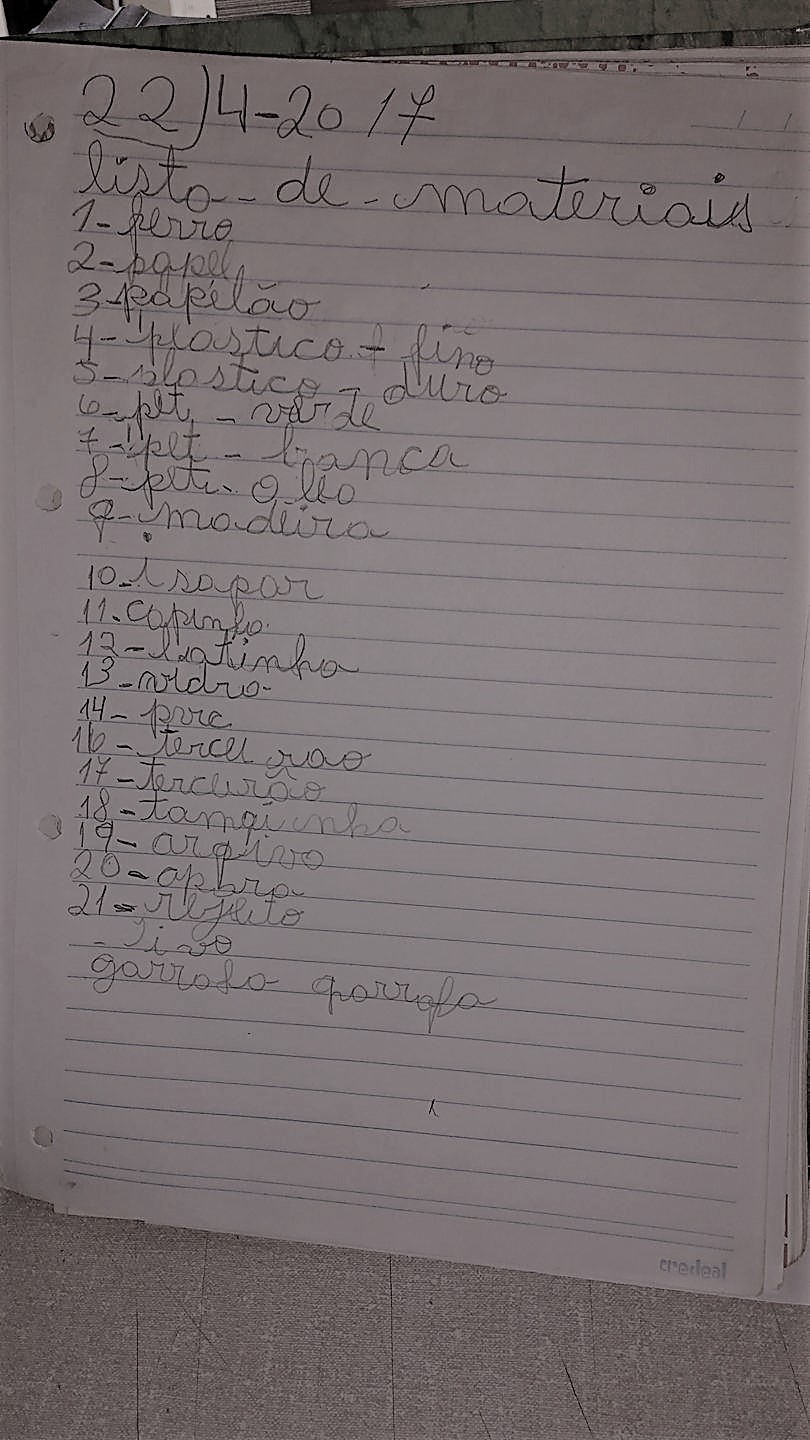 22)4-2017
lista - de - materiais
1- ferro
2- papel
3- papelão
4- plastico - fino
5- plastico - duro
6- pet - verde
7- pet - branca
8- pet - oleo
9- madeira
10- isapor
11- copinho
12- latinha
13- vidro
14- pvc
16- terceirao
17- terceirão
18- tampinha
19- arqivo
20-
21- rejeito
- livo
garrafa garrafa
credeal